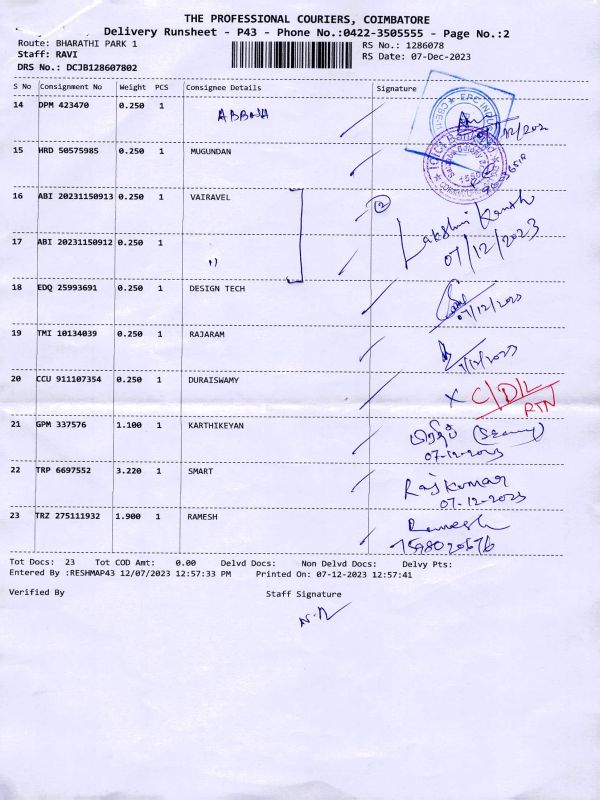 THE PROFESSIONAL COURIERS, COIMBATORE
Delivery Runsheet - P43 - Phone No.:0422-3505555 - Page No.:2
Route: BHARATHI PARK 1 RS No.: 1286078
Staff: RAVI RS Date: 07-Dec-2023
DRS No.: DCJB128607802
S No Consignment No Weight PCS Consignee Details Signature
14 DPM 423470 0.250 1
15 HRD 50575985 0.250 1 MUGUNDAN
16 ABI 20231150913 0.250 1 VAIRAVEL 2
Lakshmi Kanth
17 ABI 20231150912 0.250 1 07/12/2023
18 EDQ 25993691 0.250 1 DESIGN TECH
07/12/2023
19 TMI 10134039 0.250 1 RAJARAM
7/12/2023
20 CCU 911107354 0.250 1 DURAISWAMY X C/D/L
RTN
21 GPM 337576 1.100 1 KARTHIKEYAN
07-12-2023
22 TRP 6697552 3.220 1 SMART Rajkumar
07-12-2023
23 TRZ 275111932 1.900 1 RAMESH Ramesh
Tot Docs: 23 Tot COD Amt: 0.00 Delvd Docs: Non Delvd Docs: Delvy Pts:
Entered By :RESHMAP43 12/07/2023 12:57:33 PM Printed On: 07-12-2023 12:57:41
Verified By Staff Signature